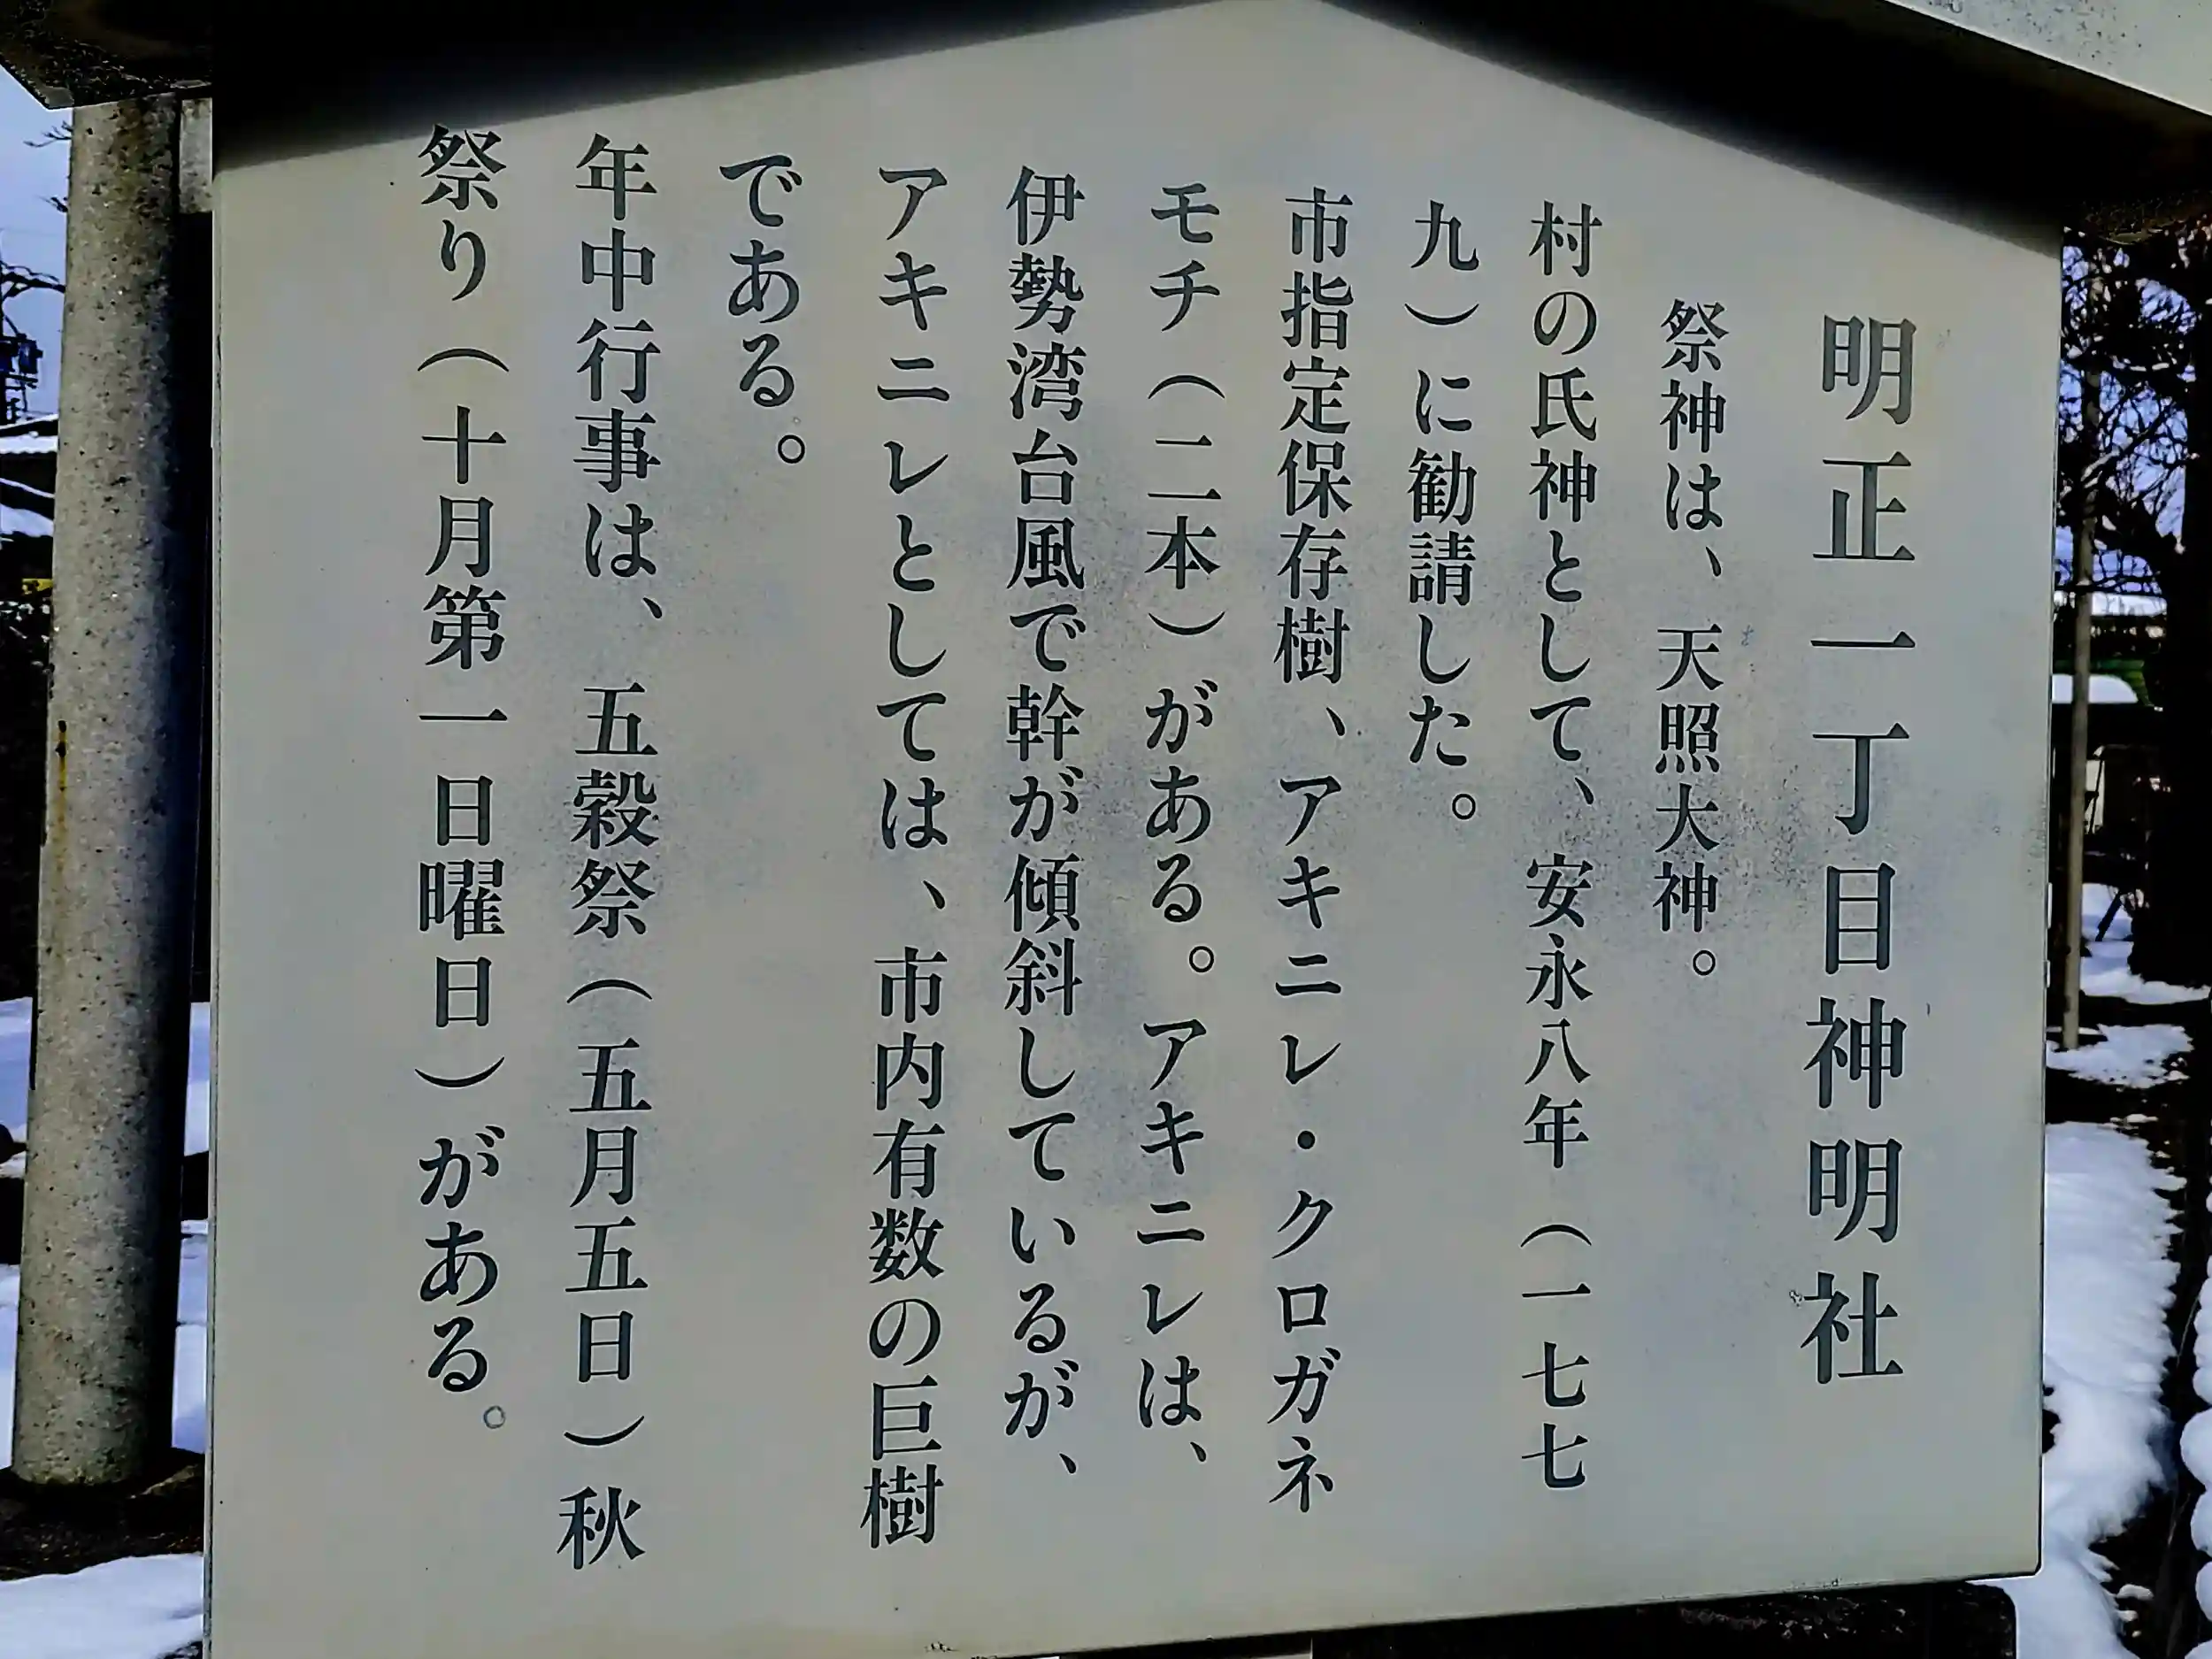 明正一丁目神明社
祭神は、天照大神。
村の氏神として、安永八年（一七七
九）に勧請した。
市指定保存樹、アキニレ・クロガネ
モチ（二本）がある。アキニレは、
伊勢湾台風で幹が傾斜しているが、
アキニレとしては、市内有数の巨樹
である。
年中行事は、五穀祭（五月五日）秋
祭り（十月第一日曜日）がある。